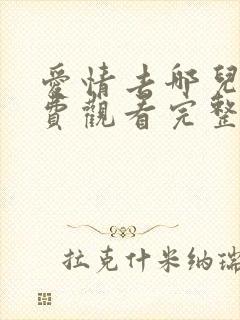 愛情去哪兒
費觀看完整
拉克什米納瑞